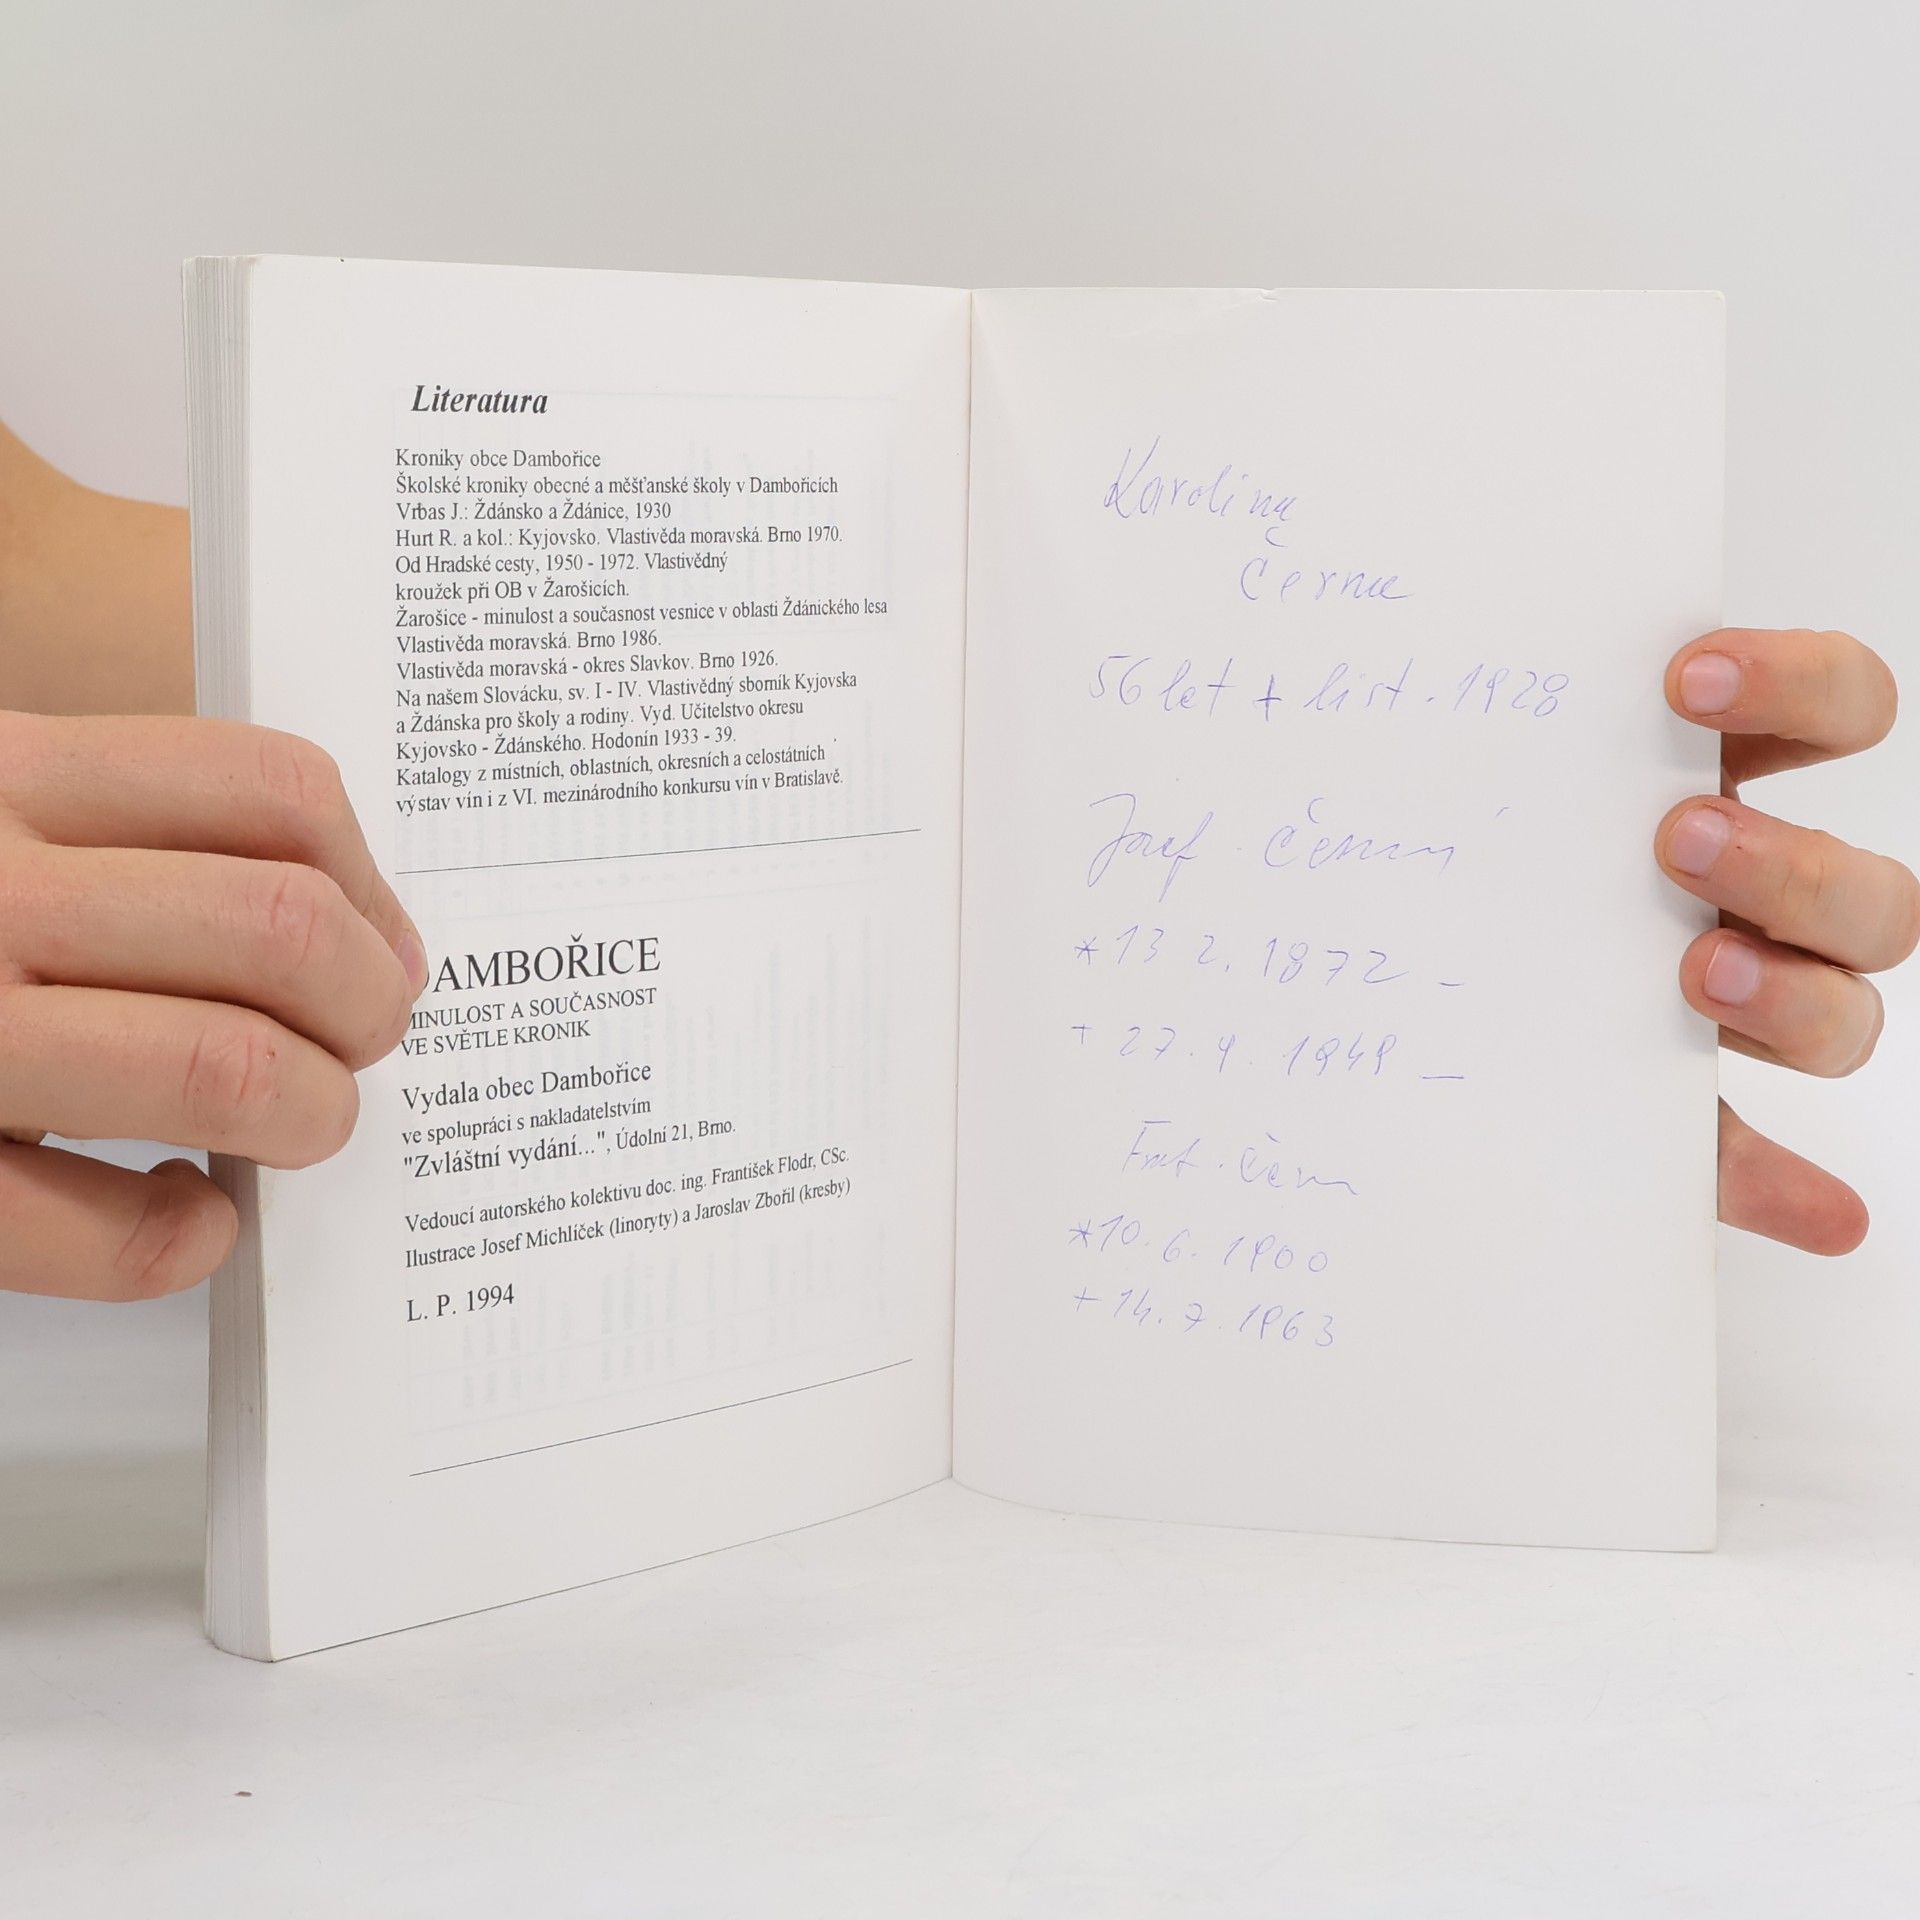 Literatura
Kroniky obce Dambořice
Školské kroniky obecné a měšťanské školy v Dambořicích
Vrbas J.: Ždánsko a Ždánice, 1930
Hurt R. a kol.: Kyjovsko. Vlastivěda moravská. Brno 1970.
Od Hradské cesty, 1950 - 1972. Vlastivědný
kroužek při OB v Žarošicích.
Žarošice - minulost a současnost vesnice v oblasti Ždánického lesa
Vlastivěda moravská. Brno 1986.
Vlastivěda moravská - okres Slavkov. Brno 1926.
Na našem Slovácku, sv. I - IV. Vlastivědný sborník Kyjovska
a Ždánska pro školy a rodiny. Vyd. Učitelstvo okresu
Kyjovsko - Ždánského. Hodonín 1933 - 39.
Katalogy z místních, oblastních, okresních a celostátních
výstav vín i z VI. mezinárodního konkursu vín v Bratislavě.
DAMBOŘICE
MINULOST A SOUČASNOST
VE SVĚTLE KRONIK
Vydala obec Dambořice
ve spolupráci s nakladatelstvím
"Zvláštní vydání...", Údolní 21, Brno.
Vedoucí autorského kolektivu doc. ing. František Flodr, CSc.
Ilustrace Josef Michlíček (linoryty) a Jaroslav Zbořil (kresby)
L. P. 1994
Karolina
Černa
56 let + list. 1928
Josef Černý
*13 2. 1872 -
+ 27. 4. 1949 -
*10. 6. 1900
+ 14. 7. 1963